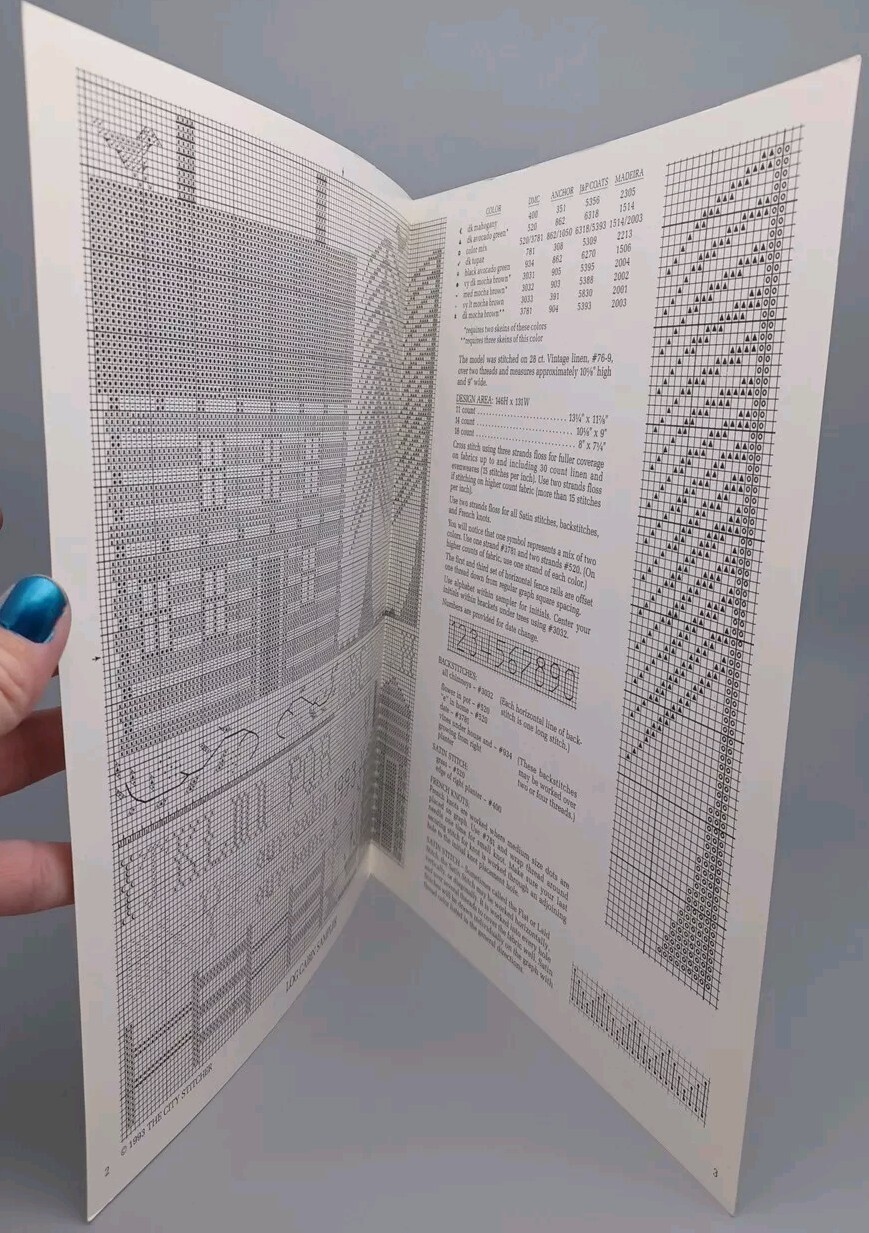 LOG CABIN SAMPLER
© 1993 THE CITY STITCHER
2
COLOR DMC ANCHOR J&P COATS MADEIRA
dk mahogany 400 351 5356 2305
dk avocado green* 520 862 6318 1514
color mix 520/3781 862/1050 6318/5393 1514/2003
dk topaz 781 308 5309 2213
black avocado green 934 862 6270 1506
vy dk mocha brown* 3031 905 5395 2004
med mocha brown* 3032 903 5388 2002
vy lt mocha brown 3033 391 5830 2001
dk mocha brown** 3781 904 5393 2003
*requires two skeins of these colors
**requires three skeins of this color
The model was stitched on 28 ct. Vintage linen, #76-9,
over two threads and measures approximately 10⅜" high
and 9" wide.
DESIGN AREA: 146H x 131W
11 count 13¼" x 11⅞"
14 count 10⅜" x 9"
18 count 8" x 7¼"
Cross stitch using three strands floss for fuller coverage
on fabrics up to and including 30 count linen and
evenweaves (15 stitches per inch). Use two strands floss
if stitching on higher count fabric (more than 15 stitches
per inch).
Use two strands floss for all Satin stitches, backstitches,
and French knots.
You will notice that one symbol represents a mix of two
colors. Use one strand #3781 and two strands #520. (On
higher counts of fabric, use one strand of each color.)
The first and third set of horizontal fence rails are offset
one thread down from regular graph square spacing.
Use alphabet within sampler for initials. Center your
initials within brackets under trees using #3032.
Numbers are provided for date change.
1234567890
BACKSTITCHES:
all chimneys - #3032 (Each horizontal line of back-
stitch is one long stitch.)
flower in pot - #520
"e" in home - #520
date - #3781
vines under house and - #934 (These backstitches
growing from right may be worked over
planter two or four threads.)
SATIN STITCH:
grass - #520
edge of right planter - #400
FRENCH KNOTS:
French knots are worked where medium size dots are
placed on graph. Use #781 and wrap thread around
needle one time for small knot. Make sure your last
hole to the initial knot placement hole.
SATIN STITCH - Sometimes called the Flat or Laid
3